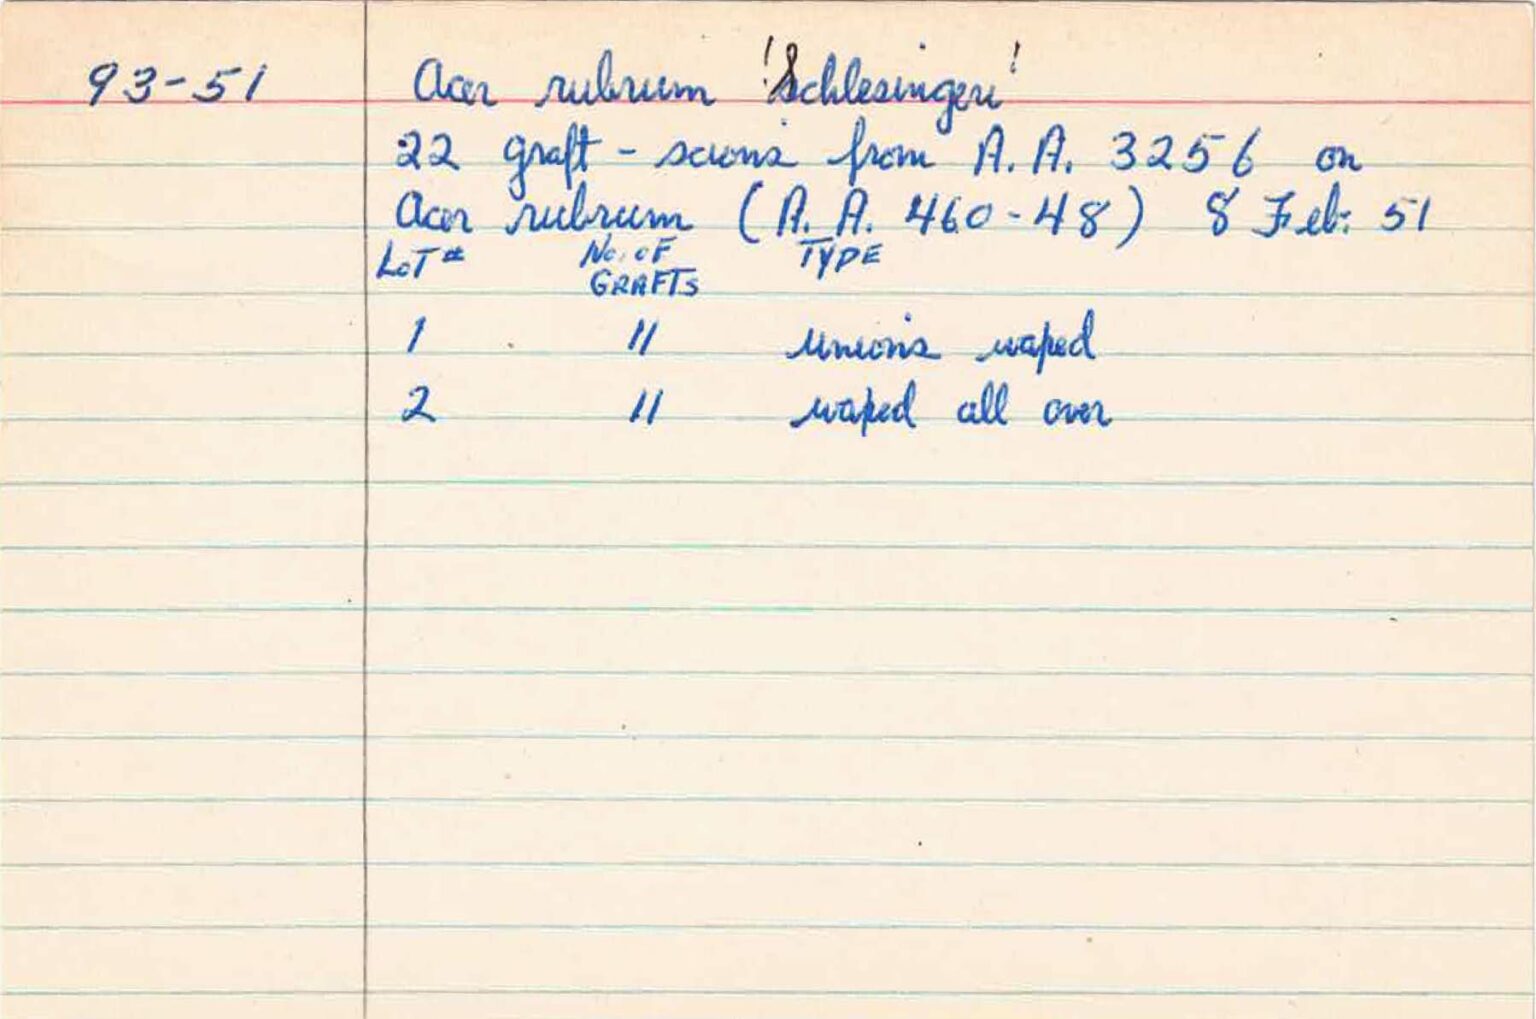 93-51 Acer rubrum 'Schlesingeri'
22 graft - scions from A.A. 3256 on
Acer rubrum (A.A. 460-48) 8 Feb. 51
LOT # No. OF GRAFTS TYPE
1 11 unions waped
2 11 waped all over